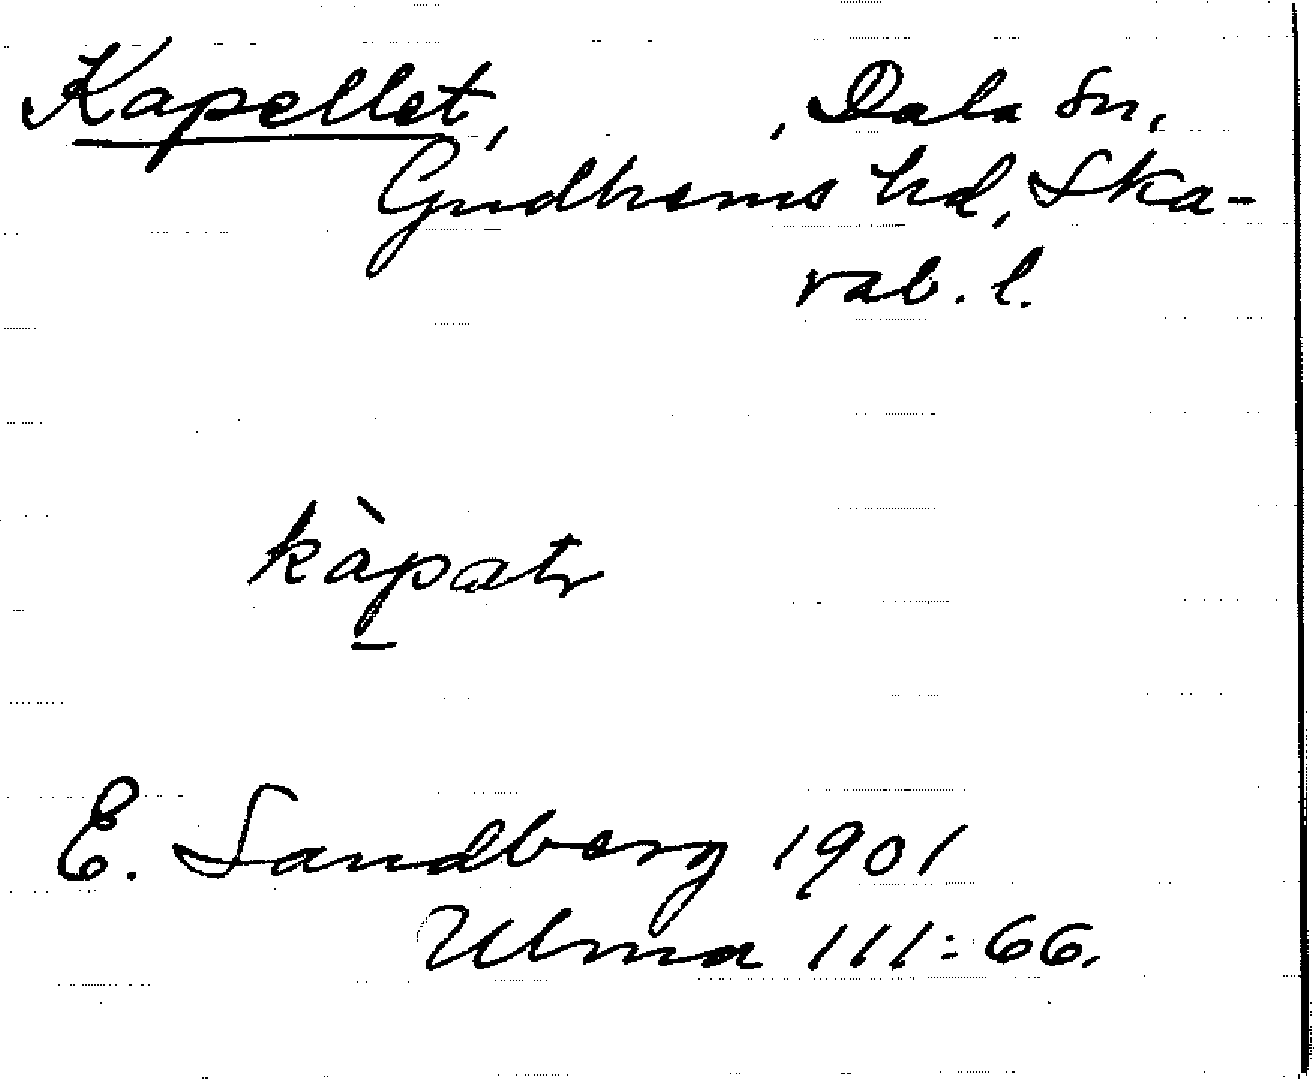 Kapellet, , Dala Sn,
Gudhems hd, Ska-
rab. l.
E. Sandberg 1901
Ulma 111:66.